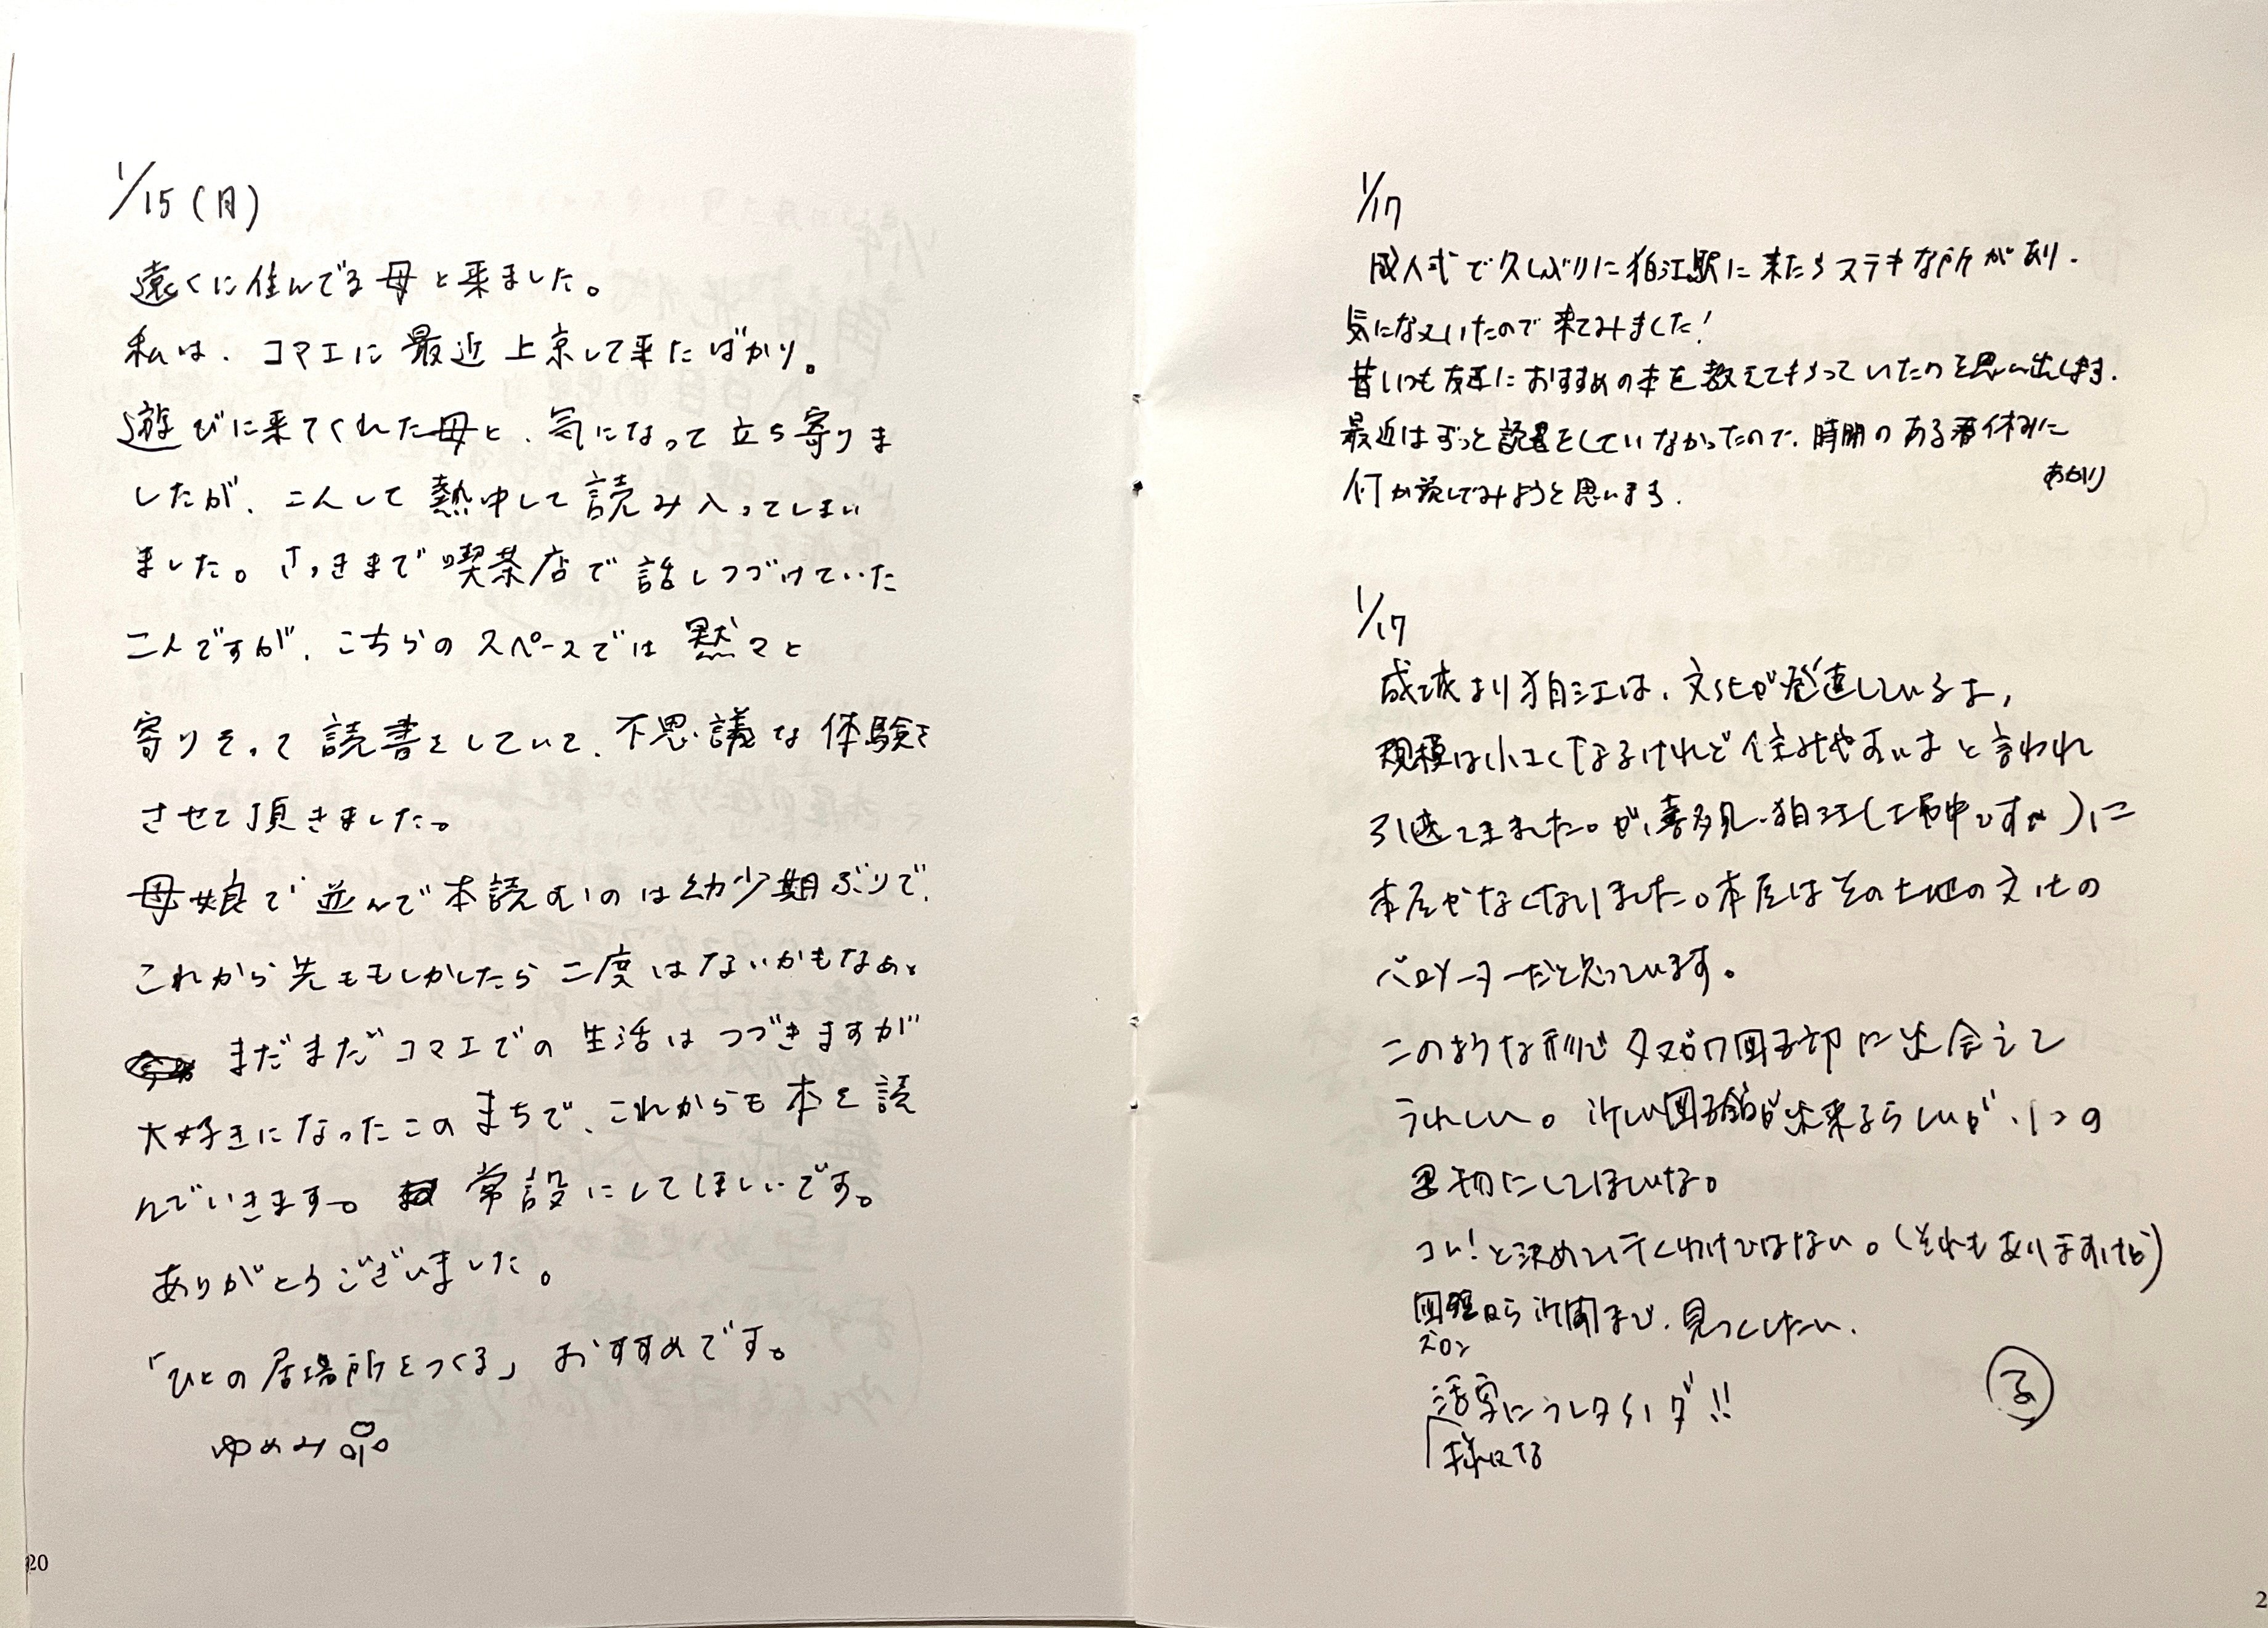 1/15(月)
遠くに住んでる母と来ました。
私は、コマエに最近上京して来たばかり。
遊びに来てくれた母と、気になって立ち寄りま
したが、二人して熱中して読み入ってしまい
ました。さっきまで喫茶店で話しつづけていた
二人ですが、こちらのスペースでは黙々と
寄りそって読書をしていて、不思議な体験を
させて頂きました。
母娘で並んで本読むのは幼少期ぶりで、
これから先ももしかしたら二度はないかもなぁ。
まだまだコマエでの生活はつづきますが
大好きになったこのまちで、これからも本を読
んでいきます。常設にしてほしいです。
ありがとうございました。
「ひとの居場所をつくる」おすすめです。
ゆめみ
20
1/17
成人式で久しぶりに狛江駅に来たらステキな所があり、
気になっていたので来てみました!
昔いつも友達におすすめの本を教えてもらっていたのを思い出します。
最近はずっと読書をしていなかったので、時間のある春休みに
何か読んでみようと思います。
あかり
1/17
成城より狛江は、文化が発達しているよ、
規模は小さくなるけれど住みやすいよと言われ
引越てきました。が、喜多見、狛江(工事中ですが)に
本屋がなくなりました。本屋はその土地の文化の
バロメーターだと思っています。
このような形でタマガワ図書部に出会えて
うれしい。新しい図書館が出来るらしいが、1つ1つ
大切にしてほしいな。
コレ!と決めて行くわけではない。(それもありますけど)
から新聞まで、見つくしたい。
活字にうしタイノダ!!
2